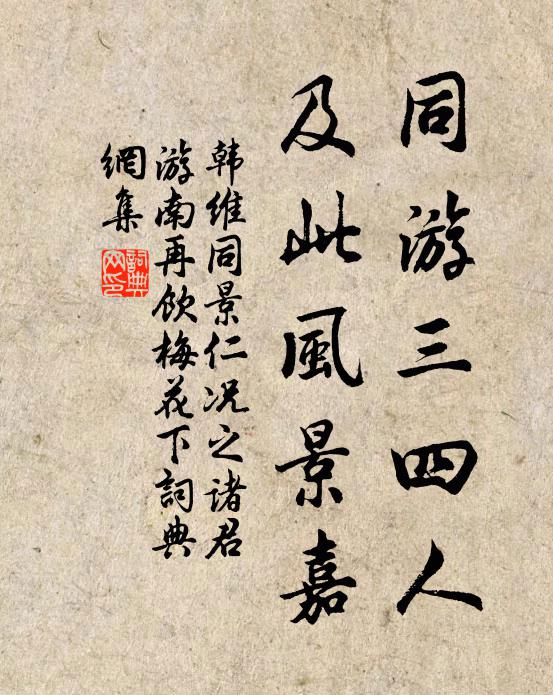 同游三四人
及此風景嘉
韩维同景仁况之诸君
游南再饮梅花下詞典
網集
詞典
网印